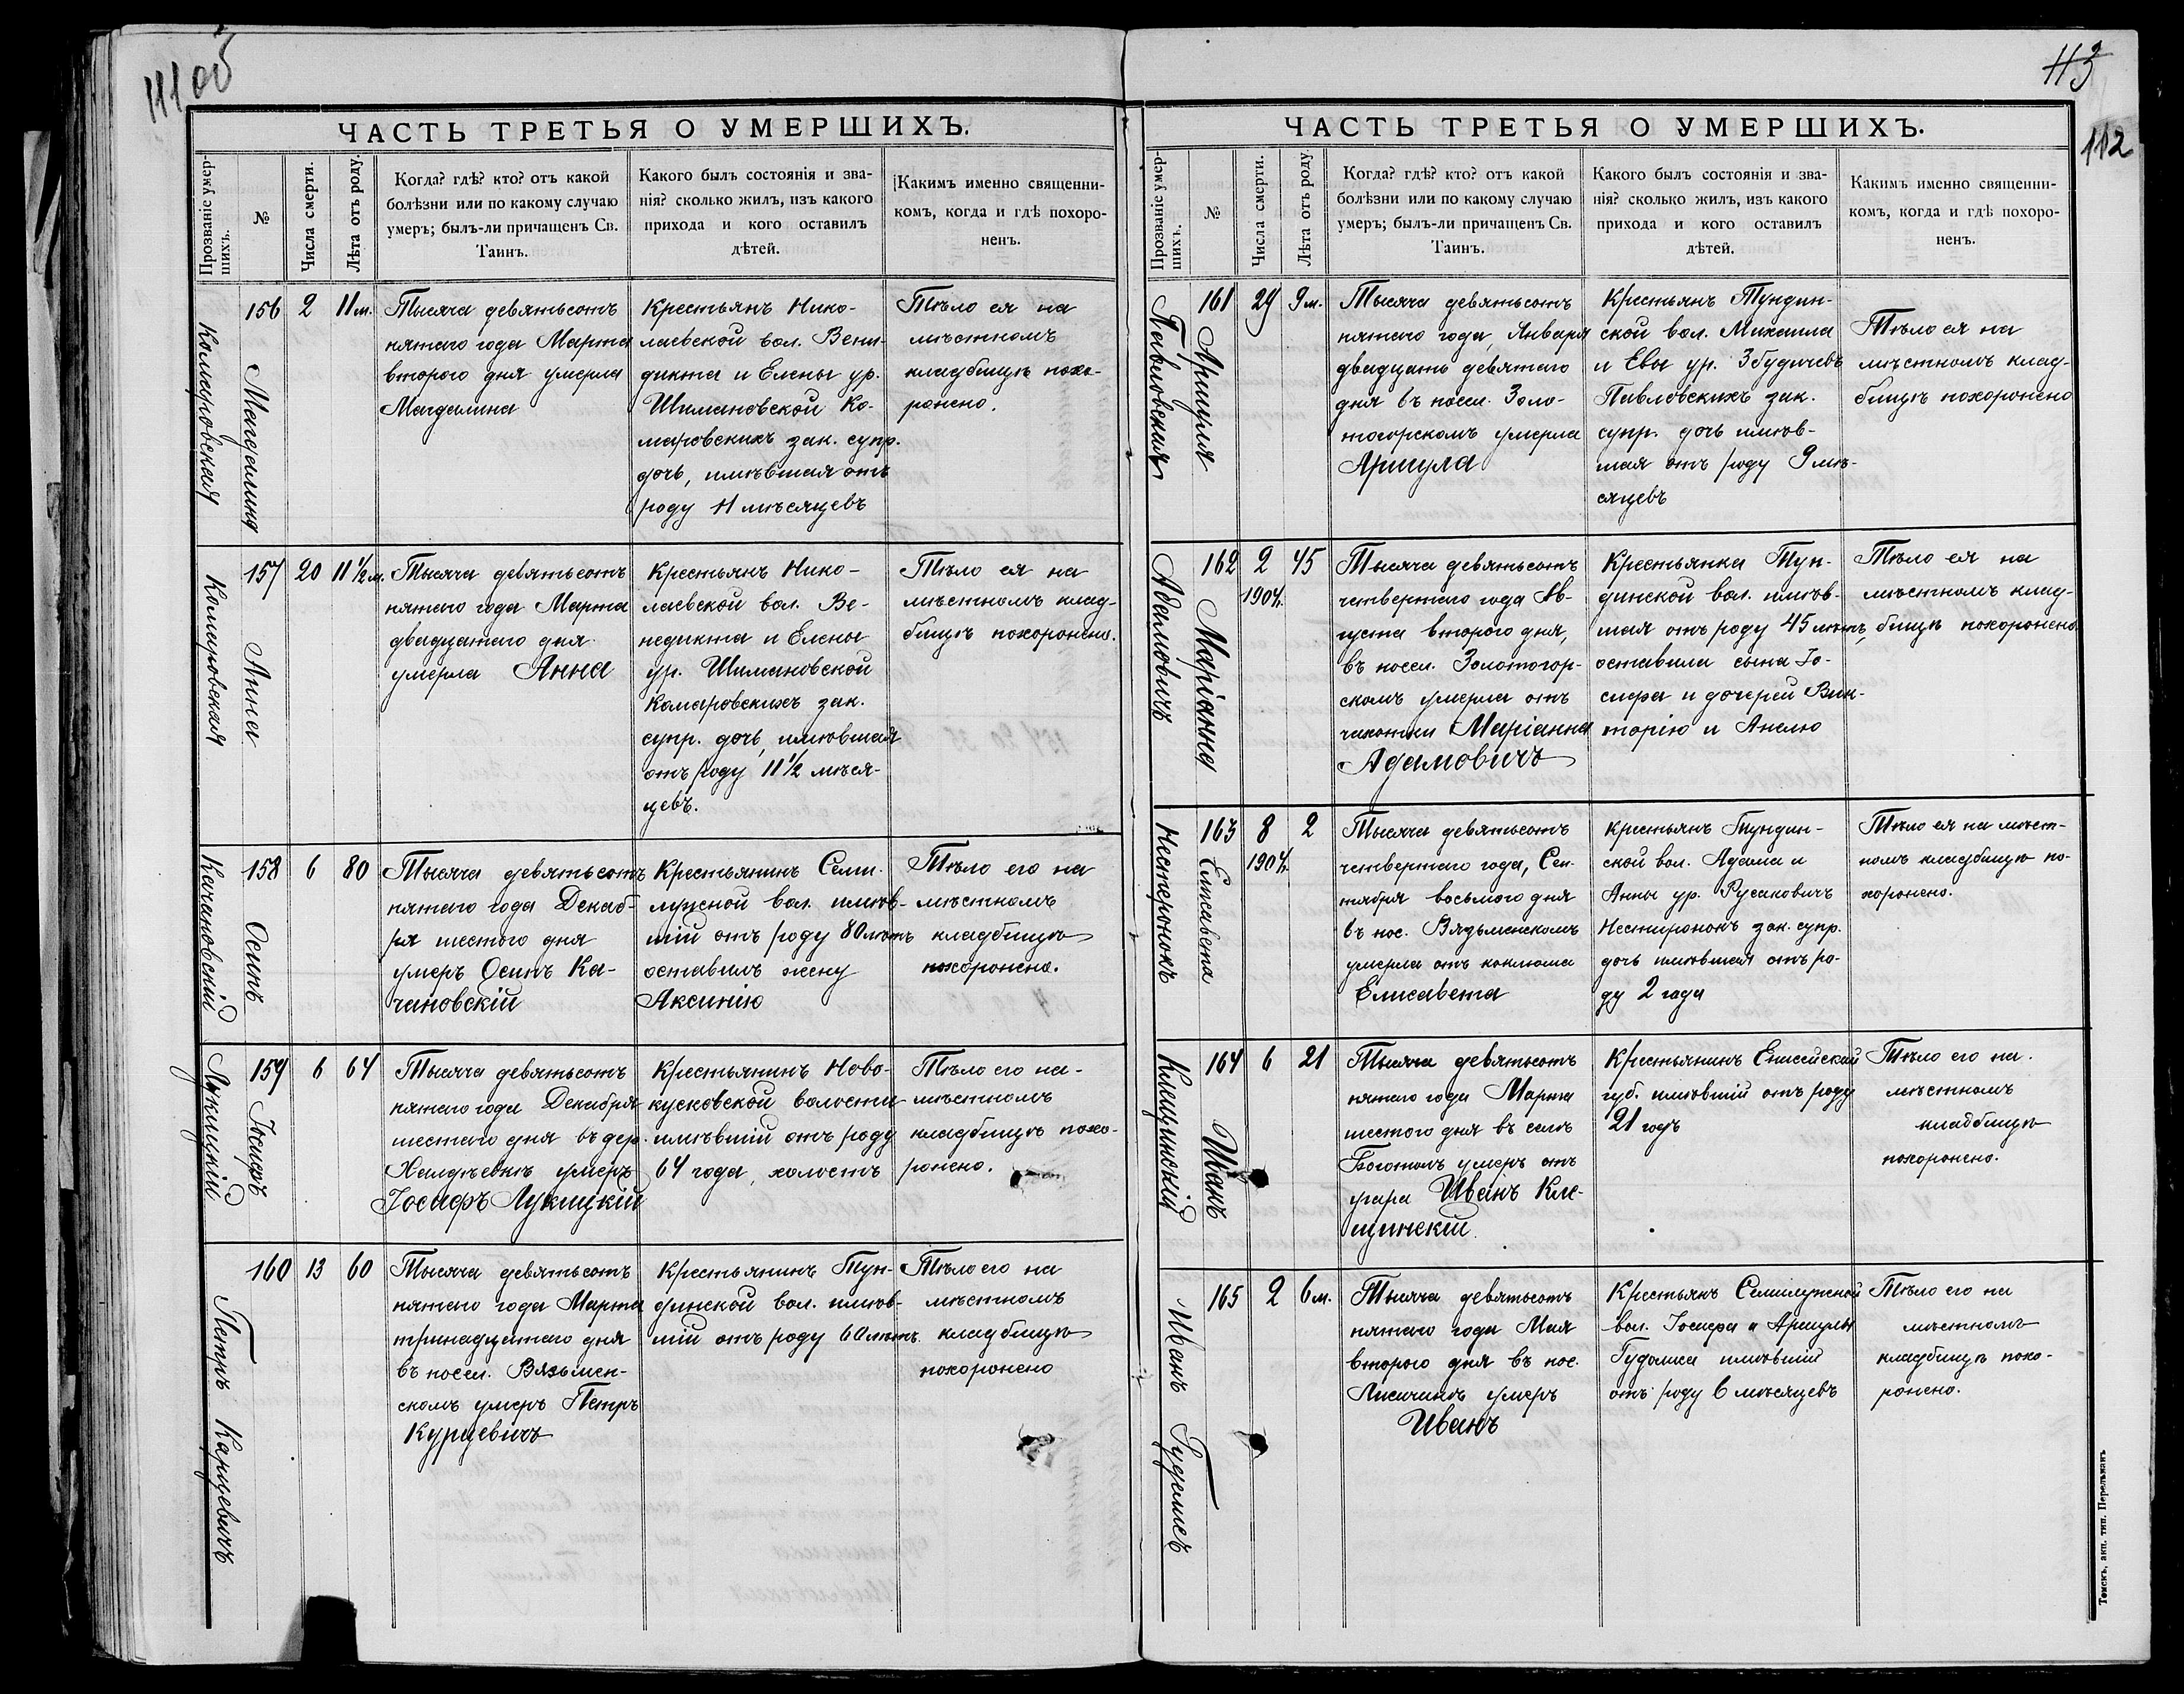 111 об
ЧАСТЬ ТРЕТЬЯ О УМЕРШИХЪ.
Прозваніе умер-
шихъ.
№
Числа смерти.
Лѣта отъ роду.
Когда? гдѣ? кто? отъ какой
болѣзни или по какому случаю
умеръ; былъ-ли причащенъ Св.
Таинъ.
Какого былъ состоянія и зва-
нія? сколько жилъ, изъ какого
прихода и кого оставилъ
дѣтей.
Какимъ именно священни-
комъ, когда и гдѣ похоро-
ненъ.
Комаровская
Магдалина
156
2
11 м.
Тысяча девятьсотъ
пятаго года Марта
второго дня умерла
Магдалина
Крестьянъ Нико-
лаевской вол. Вени-
дикта и Елены ур.
Шимановской Ко-
маровскихъ зак. супр.
дочь, имѣвшая отъ
роду 11 мѣсяцевъ
Тѣло ея на
мѣстномъ
кладбищѣ похо-
ронено.
Комаровская
Анна
157
20
11 ½ м.
Тысяча девятьсотъ
пятаго года Марта
двадцатаго дня
умерла Анна
Крестьянъ Нико-
лаевской вол. Ве-
недикта и Елены
ур. Шимановской
Комаровскихъ зак.
супр. дочь, имѣвшая
отъ роду 11 ½ мѣся-
цевъ.
Тѣло ея на
мѣстномъ клад-
бищѣ похоронено.
Качановскій
Осипъ
158
6
80
Тысяча девятьсотъ
пятаго года Декаб-
ря шестого дня
умеръ Осипъ Ка-
чановскій
Крестьянинъ Семи-
лужной вол. имѣв-
шій отъ роду 80 лѣтъ
оставилъ жену
Аксинію
Тѣло его на
мѣстномъ
кладбищѣ
похоронено.
Лукицкій
Іосифъ
159
6
64
Тысяча девятьсотъ
пятаго года Декабря
шестаго дня въ дер.
Халдѣевкѣ умеръ
Іосифъ Лукицкій
Крестьянинъ Ново-
кусковской волости
имѣвшій отъ роду
64 года, холостъ
Тѣло его на-
мѣстномъ
кладбищѣ похо-
ронено.
Петръ Карцевичъ
160
13
60
Тысяча девятьсотъ
пятаго года Марта
тринадцатаго дня
въ посел. Вязьмен-
скомъ умеръ Петръ
Курцевичъ
Крестьянинъ Тун-
динской вол. имѣв-
шій отъ роду 60 лѣтъ.
Тѣло его на
мѣстномъ
кладбищѣ
похоронено
113
112
ЧАСТЬ ТРЕТЬЯ О УМЕРШИХЪ.
Прозваніе умер-
шихъ.
№
Числа смерти.
Лѣта отъ роду.
Когда? гдѣ? кто? отъ какой
болѣзни или по какому случаю
умеръ; былъ-ли причащенъ Св.
Таинъ.
Какого былъ состоянія и зва-
нія? сколько жилъ, изъ какого
прихода и кого оставилъ
дѣтей.
Какимъ именно священни-
комъ, когда и гдѣ похоро-
ненъ.
Павловская
Аршуля
161
29
9 м.
Тысяча девятьсотъ
пятаго года, Января
двадцать девятаго
дня въ посел. Золо-
тогорскомъ умерла
Аршула
Крестьянъ Тундин-
ской вол. Михаила
и Евы ур. Збудичевъ
Павловскихъ зак.
супр. дочь имѣв-
шая отъ роду 9 мѣ-
сяцевъ
Тѣло ея на
мѣстномъ клад-
бищѣ похоронено
Адамовичъ
Маріанна
162
2
1904 г.
45
Тысяча девятьсотъ
четвертаго года Ав-
густа второго дня,
въ посел. Золотогор-
скомъ умерла отъ
чахотки Маріанна
Адамовичъ
Крестьянка Тун-
динской вол. имѣв-
шая отъ роду 45 лѣтъ,
оставила сына Іо-
сифа и дочерей Вик-
торію и Анелю
Тѣло ея на
мѣстномъ клад-
бищѣ похоронено.
Несторонокъ
Елисавета
163
8
1904 г.
2
Тысяча девятьсотъ
четвертаго года, Сен-
тября восьмого дня
въ пос. Вядьменскомъ
умерла отъ коклюша
Елисавета
Крестьянъ Тундин-
ской вол. Адама и
Анны ур. Русаковичъ
Нестиронокъ зак. супр.
дочь имѣвшая отъ ро-
ду 2 года
Тѣло ея на мѣст-
номъ кладбищѣ по-
хоронено.
Клещинскій
Иванъ
164
6
21
Тысяча девятьсотъ
пятаго года Марта
шестого дня въ селѣ
Боготолъ умеръ отъ
угара Иванъ Кле-
щинскій.
Крестьянинъ Енисейской
губ. имѣвшій отъ роду
21 годъ
Тѣло его на.
мѣстномъ
кладбищѣ
похоронено.
Иванъ Гудашка
165
2
6 м.
Тысяча девятьсотъ
пятаго года Мая
второго дня въ пос.
Лисичинѣ умеръ
Иванъ
Крестьянъ Семилужной
вол. Іосифа и Аршулы
Гудашка имѣвшій
отъ роду 6 мѣсяцевъ
Тѣло его на
мѣстномъ
кладбищѣ похо-
ронено.
Томскъ, акп. тип. Перельманъ